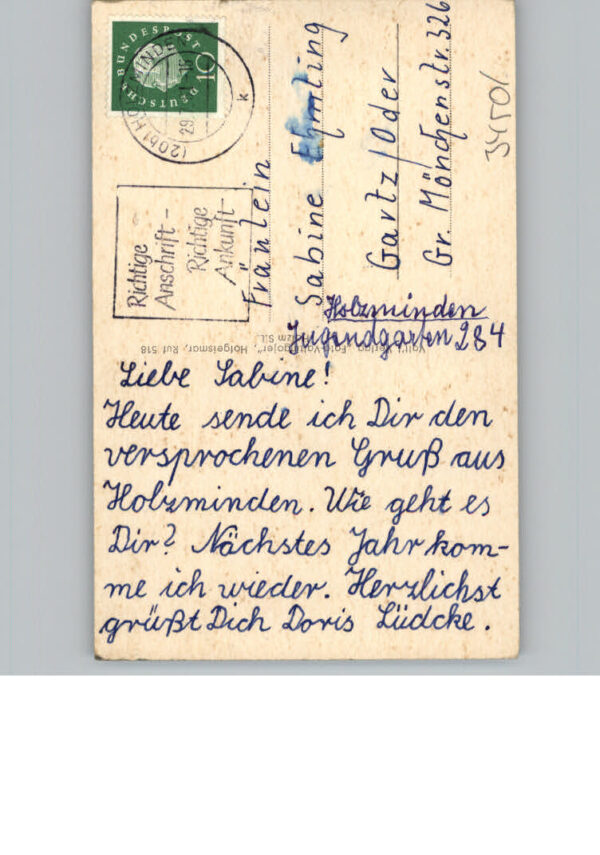 DEUTSCHE BUNDESPOST
10
(20b) HO
MINDEN
29.
k
Richtige
Anschrift –
Richtige
Ankunft
Fräulein
Sabine Ehmling
Gartz/Oder
Gr. Mönchenstr. 326
34501
Holzminden
Jugendgarten 284
Hofgeismar, Ruf 518
Liebe Sabine!
Heute sende ich Dir den
versprochenen Gruß aus
Holzminden. Wie geht es
Dir? Nächstes Jahr kom-
me ich wieder. Herzlichst
grüßt Dich Doris Lüdcke.